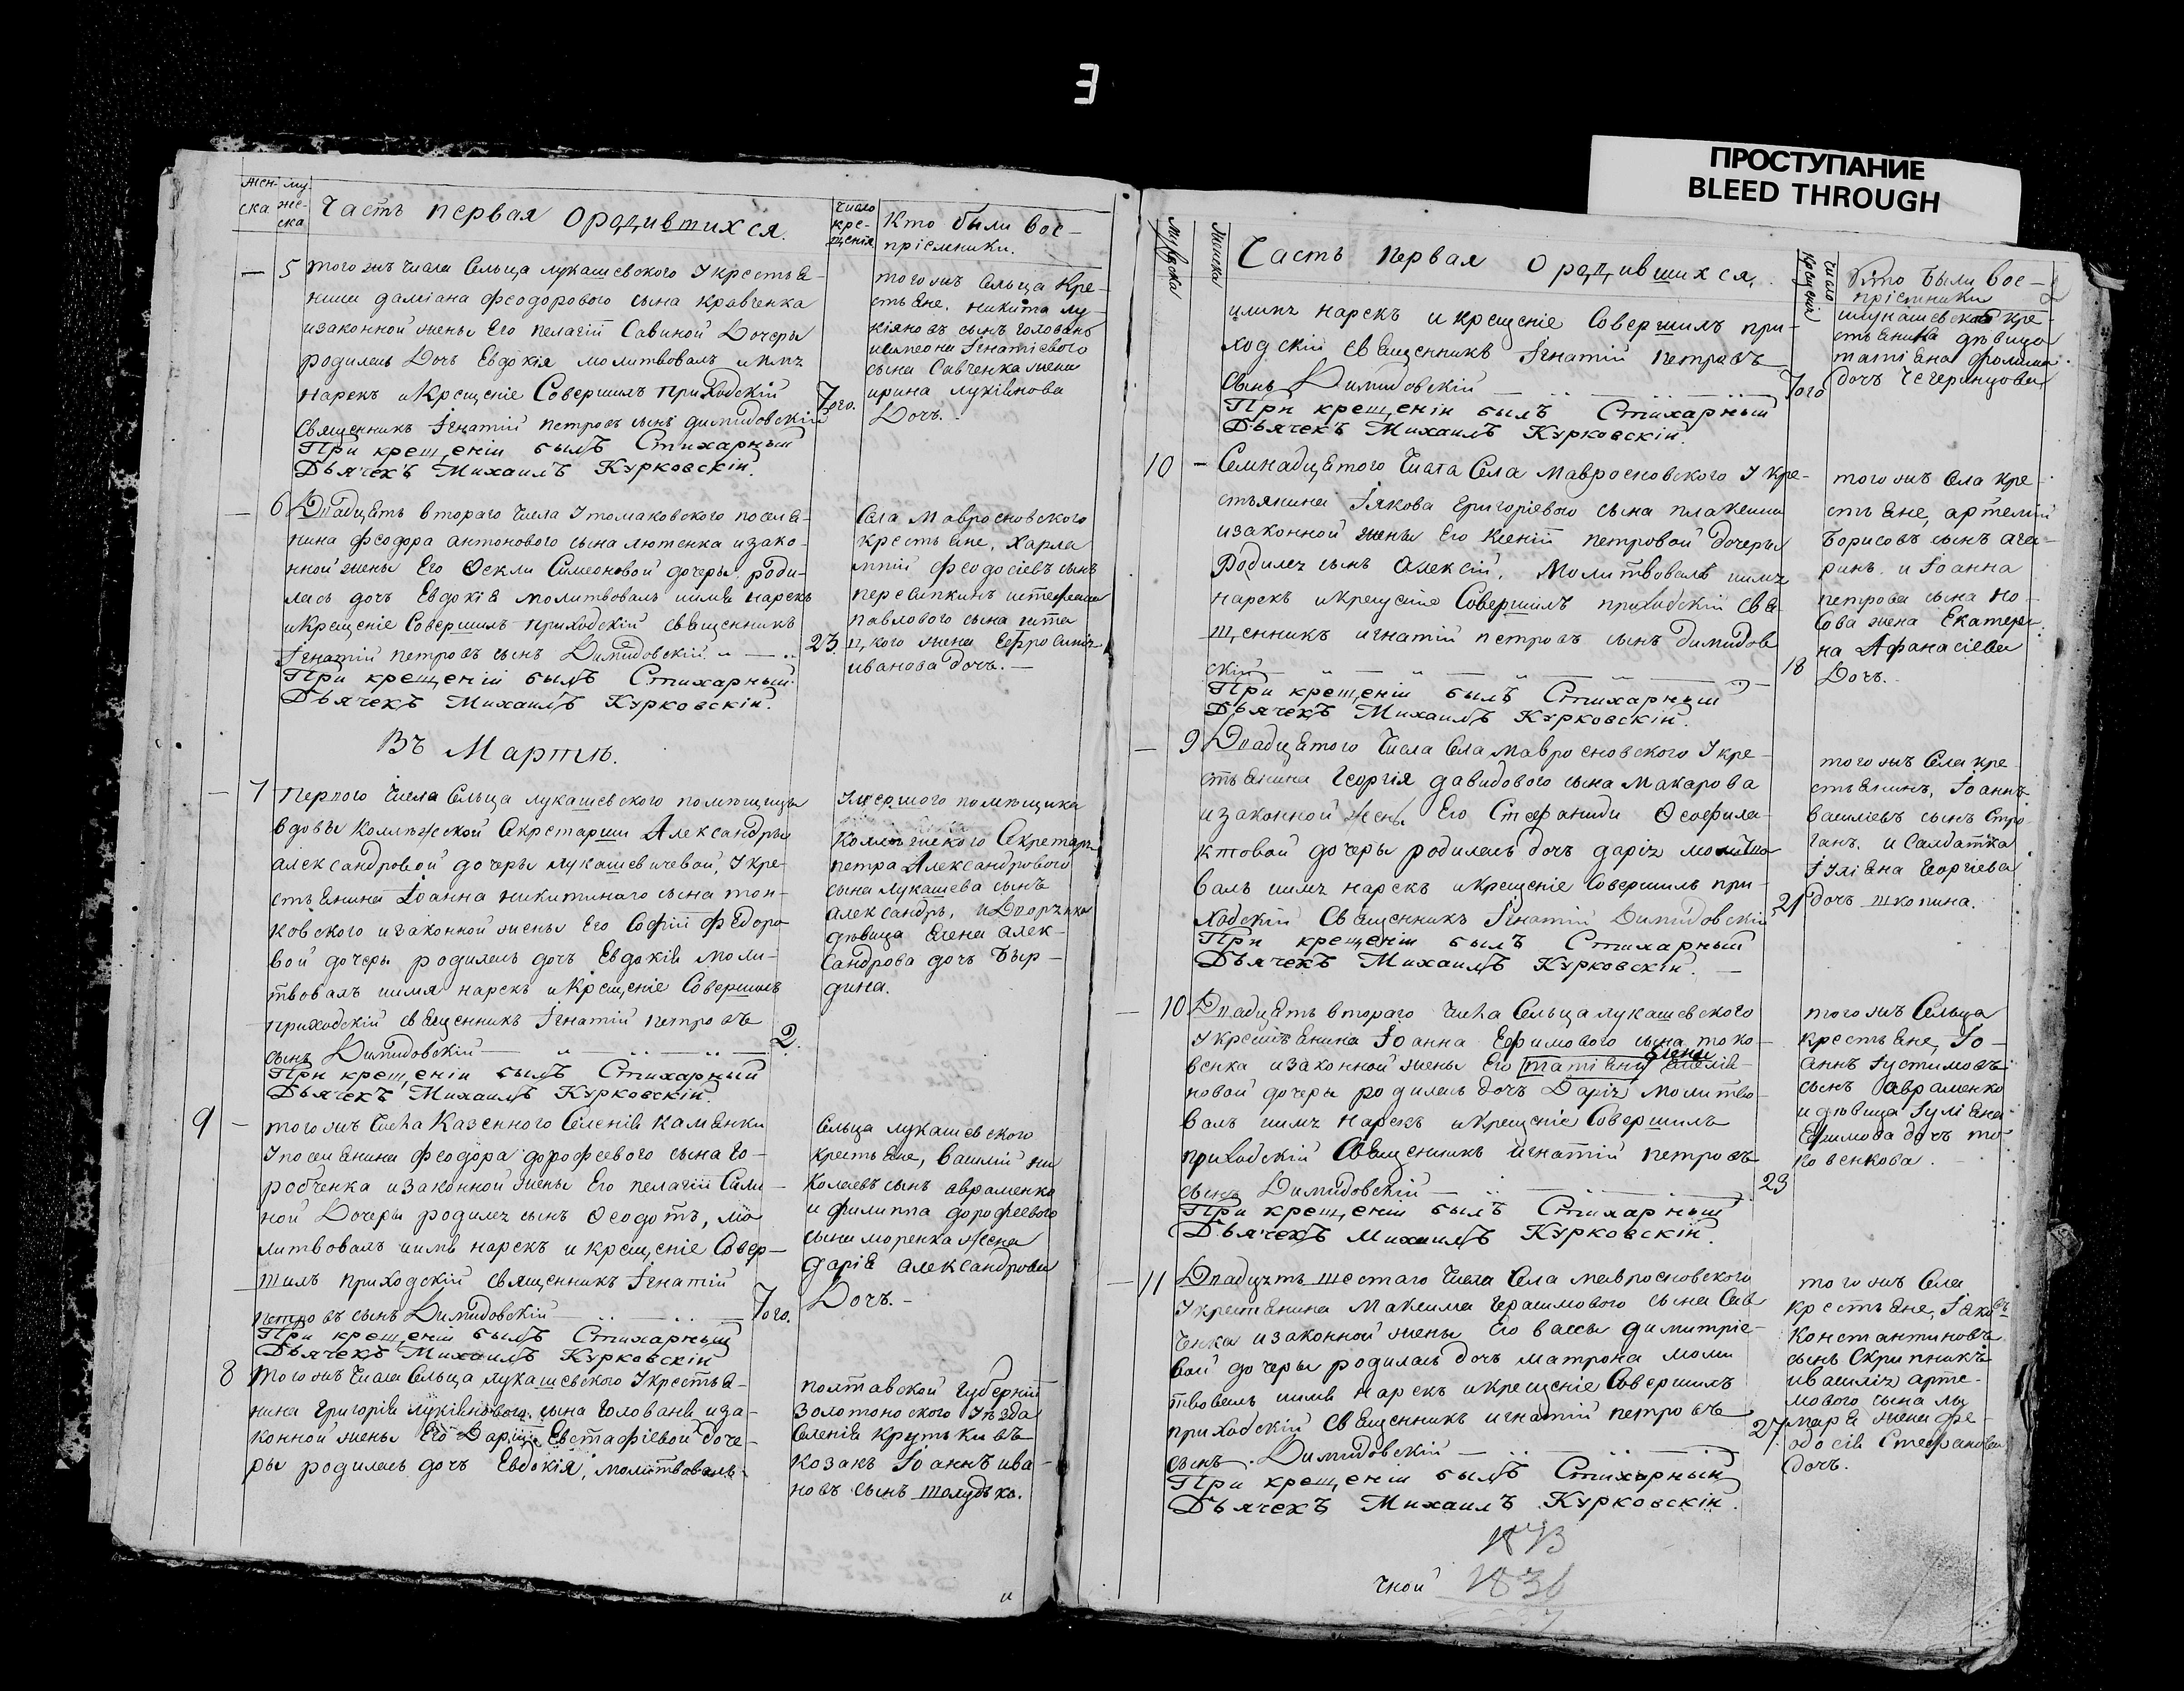 З
ПРОСТУПАНИЕ
BLEED THROUGH
жен-
ска
му-
же-
ска
Часть первая о родившихся.
Число
кре-
щенія
Кто были вос-
пріемники.
5 того жъ числа Сельца лукашевского У крестья-
нина даміана феодорового сына кравченка
изаконной жены Его пелагіи Савиной Дочеры
родилась Дочь Евдокія молитвовалъ имя
нарекъ иКрещеніе Совершилъ приходскій
священникъ Ігнатій петровъ сынъ димидовскій
При крещеніи былъ Стихарный
Дьячекъ Михаилъ Курковскій.
Того.
того жъ Сельца кре-
стьяне, никита лу-
кіяновъ сынъ головань
исимеона Ігнатіевого
сына Савченка жена
ирина лукіянова
Дочь.
6 Двадцять втораго числа У томаковского поселя-
нина феодора антонового сына лютенка изако-
нной жены Его Фекли Симеоновой дочеры роди-
лась дочь Евдокія молитвовалъ имя нарекъ
иКрещеніе Совершилъ приходскій священникъ
Ігнатій петровъ сынъ Димидовскій
При крещеніи былъ Стихарный
Дьячекъ Михаилъ Курковскій.
23.
Села Мавросновского
крестьяне, Харла
мпій феодосіевъ сынъ
павлового сына
жена
иванова дочь.
Въ Мартѣ.
7 первого числа Сельца лукашевского помѣщицы
вдовы Коллѣжской Секретарши Александры
александровой дочеры лукашевичевой, У кре-
стьянина Іоанна никитиного сына топ-
ковского изаконной жены Его Софіи Федоро
вой дочеры родилась дочь Евдокія моли-
твовалъ имя нарекъ иКрещеніе Совершилъ
приходскій священникъ Ігнатій петровъ
сынъ Димидовскій
При крещеніи былъ Стихарный
Дьячекъ Михаилъ Курковскій.
2.
Умершого помѣщика
Коллѣжского Секретаря
петра Александрового
сына лукашева сынъ
александръ, и
дѣвица Елена алек-
сандрова дочь Быр-
дина.
9 того жъ числа Казенного Селенія каменки
У поселянина феодора дорофеевого сына го-
робченка изаконной жены Его пелагіи
ной Дочеры родился сынъ Феодотъ, мо
литвовалъ имя нарекъ и крещеніе Совер-
шилъ приходскій священникъ Ігнатій
петровъ сынъ Димидовскій
При крещеніи былъ Стихарный
Дьячекъ Михаилъ Курковскій
Того.
Сельца лукашевского
крестьяне, василій ни
колаевъ сынъ авраменко
и филиппа дорофеевого
сына моренка жена
дарія александрова
Дочь.
8 того жъ числа Сельца лукашевского У крестья-
нина григорія лукіянового сына голованя иза-
конной жены Его Даріи Евстафіевой доче-
ры родилась дочь Евдокія, молитвовалъ
полтавской губерніи
Золотоноского уѣзда
Селенія крутьки въ
козакъ Іоаннъ ива
новъ сынъ шолудько.
и
мужска
женска
Часть первая о родившихся.
число
крещенія
Кто были вос-
пріемники
имя нарекъ и крещеніе Совершилъ при-
ходскій священникъ Ігнатій петровъ
сынъ Димидовскій
При крещеніи былъ Стихарный
Дьячекъ Михаилъ Курковскій.
Того
илукашевской кре-
стьянина дѣвица
татіяна
дочь
10 Семнадцятого числа Села Мавросновского У кре-
стьянина Іякова григоріевого сына плаксина
изаконной жены Его Ксеніи петровой дочеры
родился сынъ Алексій, молитвовалъ имя
нарекъ икрещеніе Совершилъ приходскій свя
щенникъ игнатій петровъ сынъ димидов
скій
При крещеніи былъ Стихарный
Дьячекъ Михаилъ Курковскій.
18
того жъ Села кре-
стьяне, артемій
Борисовъ сынъ
и Іоанна
петрова сына но-
сова жена Екатери-
на Афанасіева
Дочь.
9 Двадцятого числа Села мавросновского У кре-
стьянина Георгія давидового сына Макарова
изаконной жены Его Стефаниди Феофила-
ктовой дочеры родилась дочь дарія молитво
валъ имя нарекъ икрещеніе Совершилъ при-
ходскій Священникъ Ігнатій Димидовскій
При крещеніи былъ Стихарный
Дьячекъ Михаилъ Курковскій.
21
того жъ Села кре
стьянинъ, Іоаннъ
василіевъ сынъ Стро-
ганъ, и Салдатка
Іуліяна Георгіева
дочь шкопина.
10 Двадцять втораго числа Сельца лукашевского
У крестьянина Іоанна Ефимового сына токо-
венка изаконной жены Его татіяны
новой дочеры родилась дочь Дарія молитво
валъ имя нарекъ икрещеніе Совершилъ
приходскій Священникъ игнатій петровъ
сынъ Димидовскій
При крещеніи былъ Стихарный
Дьячекъ Михаилъ Курковскій.
23
того жъ Сельца
крестьяне, Іо-
аннъ Іустимовъ
сынъ авраменко
идѣвица Іуліяна
Ефимова дочь то-
ковенкова.
11 Двадцять шестаго числа Села мавросновского
У крестьянина Максима герасимового сына Сав
ченка изаконной жены Его вассы димитріе-
вой дочеры родилась дочь матрона моли
твовалъ имя нарекъ икрещеніе Совершилъ
приходскій священникъ игнатій петровъ
сынъ Димидовскій
При крещеніи былъ Стихарный
Дьячекъ Михаилъ Курковскій.
27.
того жъ Села
крестьяне, Іаковъ
Константиновъ
сынъ Скрипникъ
ивасилія арте-
мового сына
жена фе-
одосія Стефанова
дочь.
чной 1836